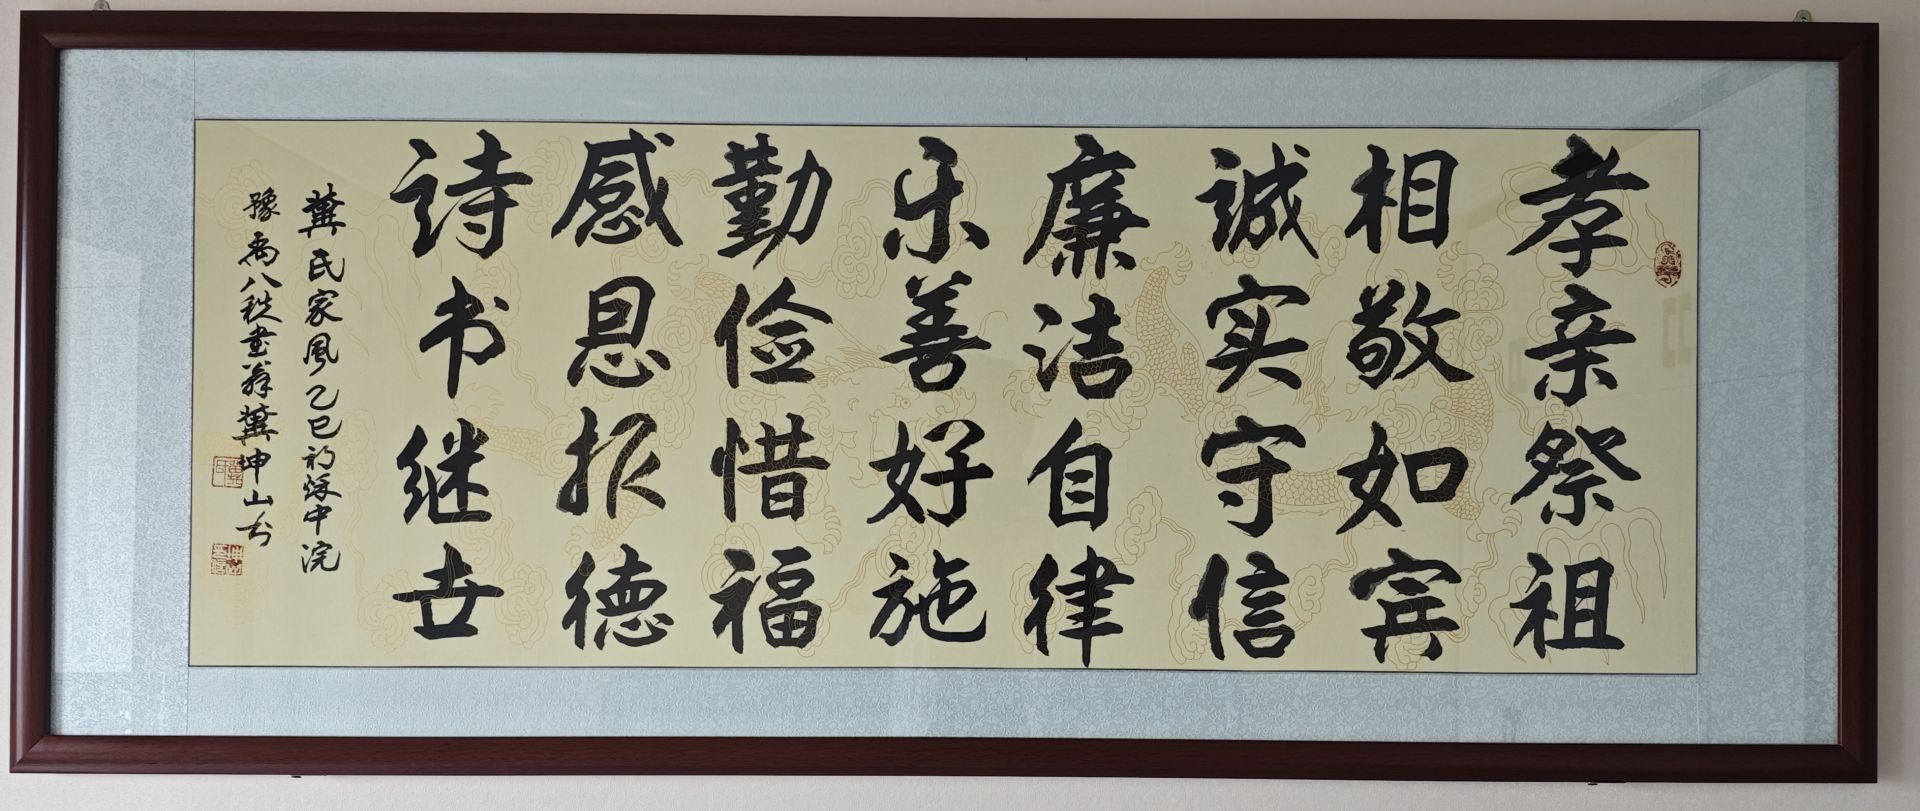 孝亲祭祖
相敬如宾
诚实守信
廉洁自律
乐善好施
勤俭惜福
感恩报德
诗书继世
冀氏家风乙巳初泳中浣
豫禹八秩画翁冀坤山书